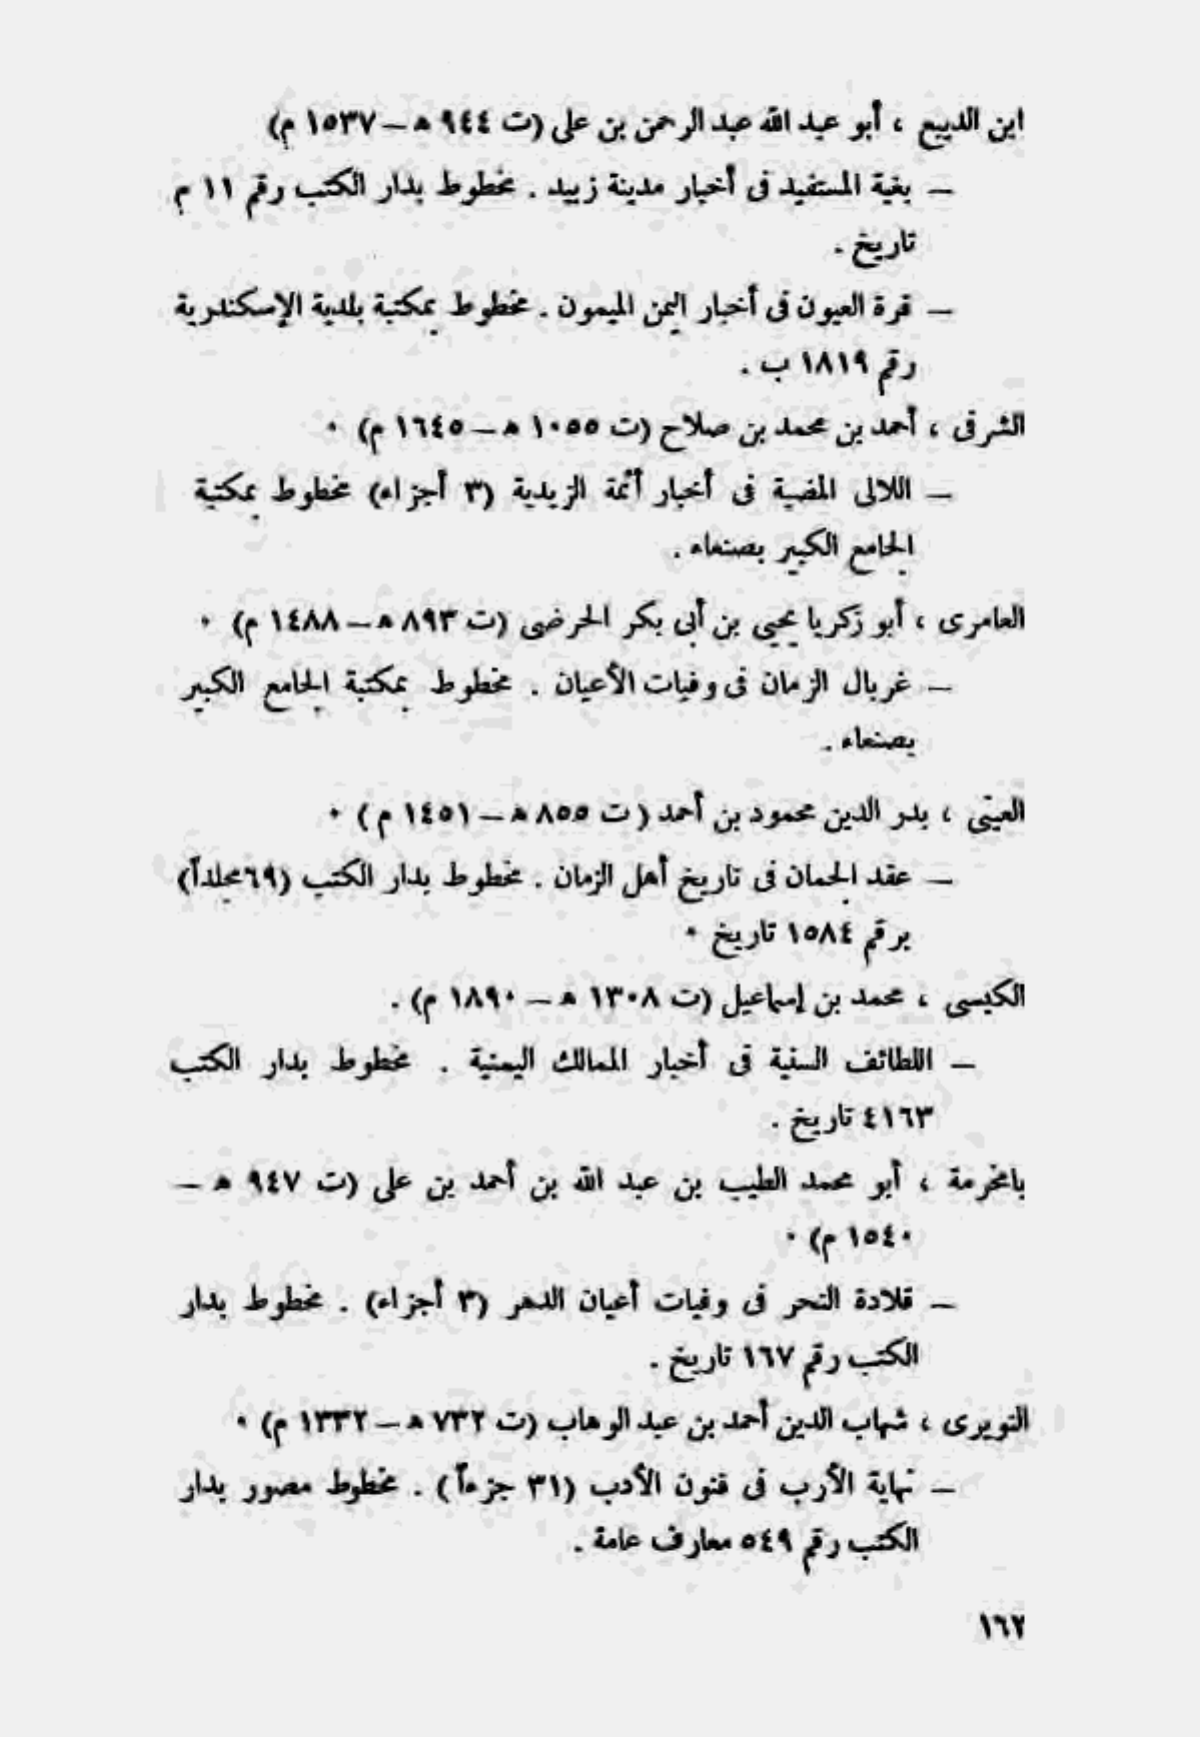 ابن الديبع ، أبو عبد الله عبد الرحمن بن على (ت ٩٤٤ هـ – ١٥٣٧ م)
– بغية المستفيد فى أخبار مدينة زبيد . مخطوط بدار الكتب رقم ١١ م
تاريخ .
– قرة العيون فى أخبار اليمن الميمون . مخطوط بمكتبة بلدية الإسكندرية
رقم ١٨١٩ ب .
الشرفى ، أحمد بن محمد بن صلاح (ت ١٠٥٥ هـ – ١٦٤٥ م) .
– اللالى المضية فى أخبار أئمة الزيدية (٣ أجزاء) مخطوط بمكتبة
الجامع الكبير بصنعاء .
العامرى ، أبو زكريا يحيى بن أبى بكر الحرضى (ت ٨٩٣ هـ – ١٤٨٨ م) .
– غربال الزمان فى وفيات الأعيان . مخطوط بمكتبة الجامع الكبير
بصنعاء .
العينى ، بدر الدين محمود بن أحمد ( ت ٨٥٥ هـ – ١٤٥١ م ) .
– عقد الجمان فى تاريخ أهل الزمان . مخطوط بدار الكتب (٦٩ مجلداً)
برقم ١٥٨٤ تاريخ .
الكبسى ، محمد بن إسماعيل (ت ١٣٠٨ هـ – ١٨٩٠ م) .
– اللطائف السنية فى أخبار الممالك اليمنية . مخطوط بدار الكتب
٤١٦٣ تاريخ .
بامخرمة ، أبو محمد الطيب بن عبد الله بن أحمد بن على (ت ٩٤٧ هـ –
١٥٤٠ م) .
– قلادة النحر فى وفيات أعيان الدهر (٣ أجزاء) . مخطوط بدار
الكتب رقم ١٦٧ تاريخ .
النويرى ، شهاب الدين أحمد بن عبد الوهاب (ت ٧٣٢ هـ – ١٣٣٢ م) .
– نهاية الأرب فى فنون الأدب (٣١ جزءاً ) . مخطوط مصور بدار
الكتب رقم ٥٤٩ معارف عامة .
١٦٢